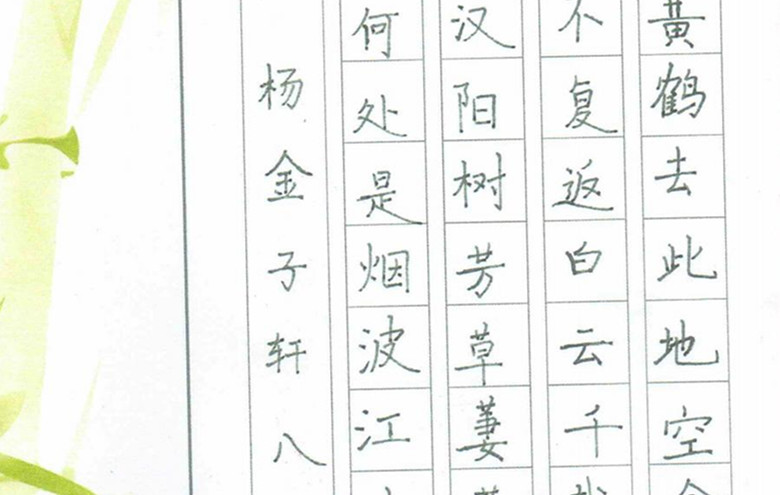 黄鹤去此地空
不复返白云千
汉阳树芳草萋
何处是烟波江
杨金子轩八